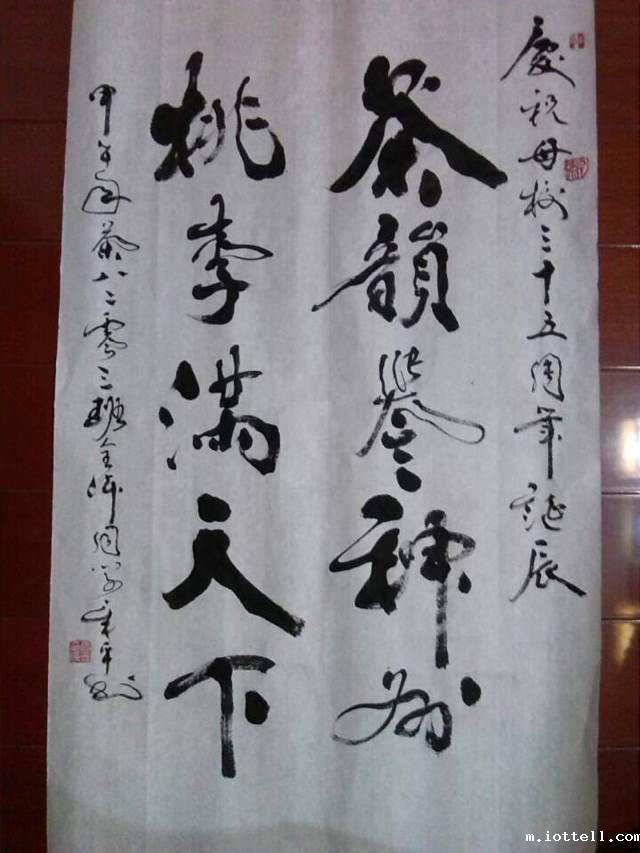 慶祝母校三十五周年誕辰
茶韻譽神州
桃李滿天下
甲午年茶八二零三班全体同学
m.iottell.com